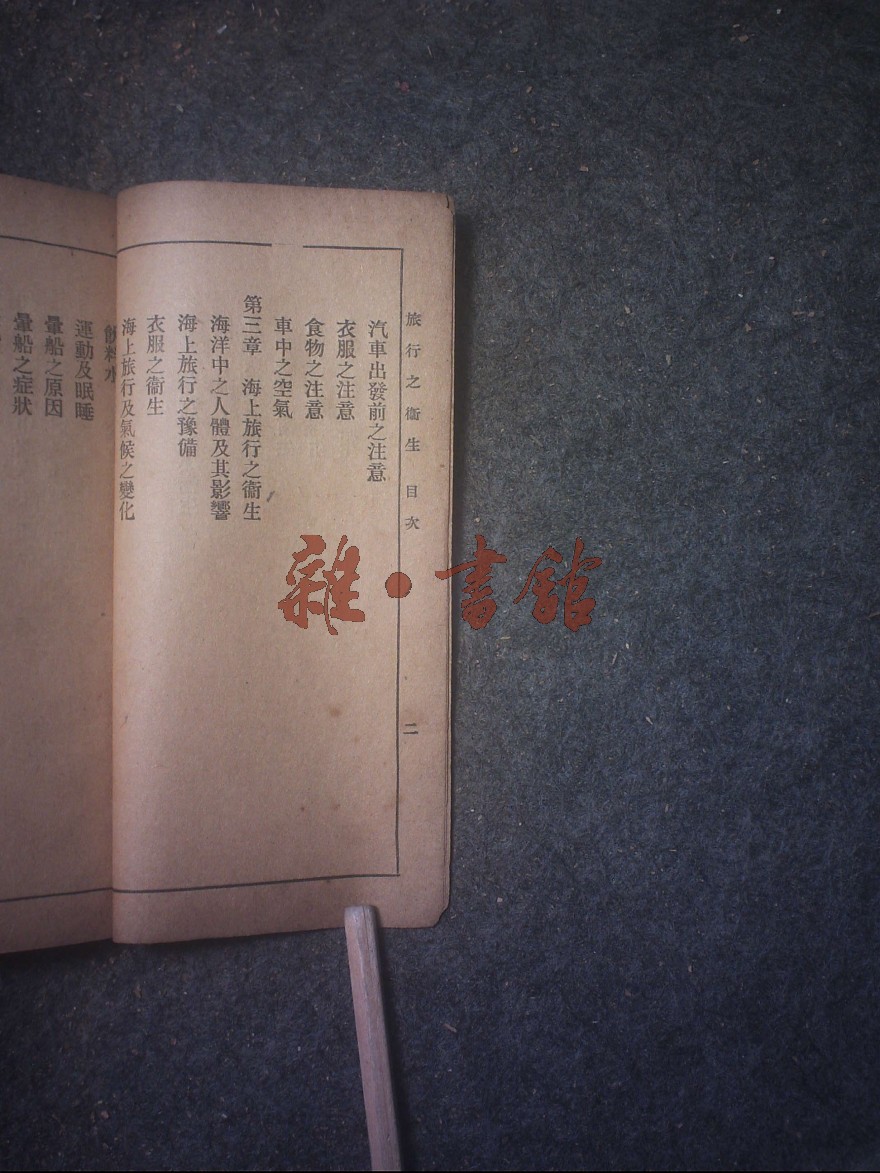 旅行之衞生 目次
二
汽車出發前之注意
衣服之注意
食物之注意
車中之空氣
第三章 海上旅行之衞生
海洋中之人體及其影響
海上旅行之豫備
衣服之衞生
海上旅行及氣候之變化
飮料水
運動及眠睡
暈船之原因
暈船之症狀
雜·書館